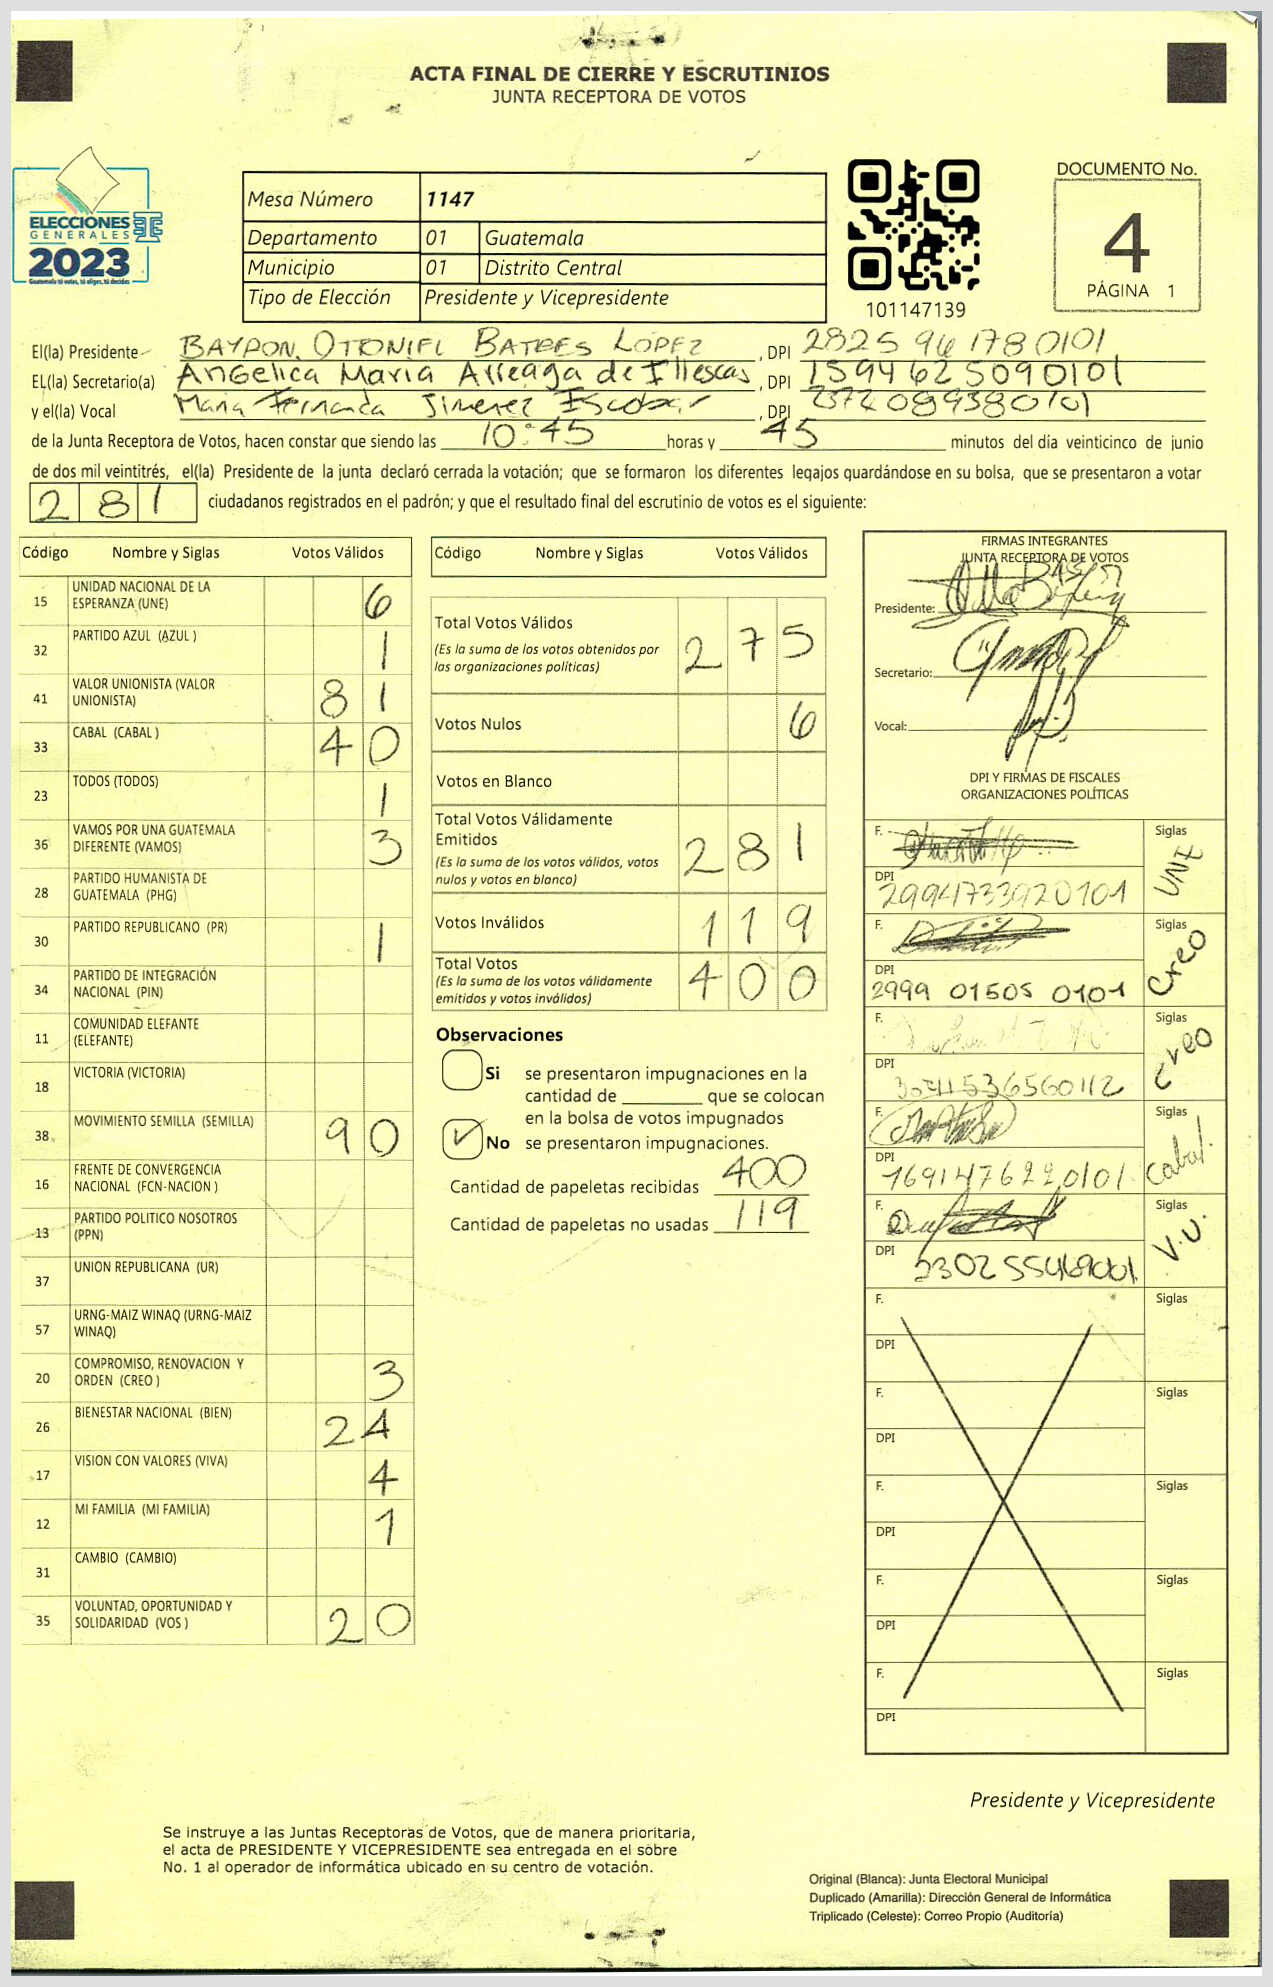 ACTA FINAL DE CIERRE Y ESCRUTINIOS
JUNTA RECEPTORA DE VOTOS
ELECCIONES
GENERALES
2023
Guatemala tú votas, tú eliges, tú decides
Mesa Número 1147
Departamento 01 Guatemala
Municipio 01 Distrito Central
Tipo de Elección Presidente y Vicepresidente
101147139
DOCUMENTO No.
4
PÁGINA 1
El(la) Presidente BAYRON OTONIEL BATRES LOPEZ, DPI 2825 94 1780101
EL(la) Secretario(a) Angelica Maria Arreaga de Illescas, DPI 1594625090101
y el(la) Vocal Maria Fernanda Jimenez Escobar, DPI
de la Junta Receptora de Votos, hacen constar que siendo las 10:45 horas y 45 minutos del día veinticinco de junio
de dos mil veintitrés, el(la) Presidente de la junta declaró cerrada la votación; que se formaron los diferentes legajos quardándose en su bolsa, que se presentaron a votar
281 ciudadanos registrados en el padrón; y que el resultado final del escrutinio de votos es el siguiente:
Código Nombre y Siglas Votos Válidos
15 UNIDAD NACIONAL DE LA ESPERANZA (UNE) 6
32 PARTIDO AZUL (AZUL ) 1
41 VALOR UNIONISTA (VALOR UNIONISTA) 81
33 CABAL (CABAL ) 40
23 TODOS (TODOS) 1
36 VAMOS POR UNA GUATEMALA DIFERENTE (VAMOS) 3
28 PARTIDO HUMANISTA DE GUATEMALA (PHG)
30 PARTIDO REPUBLICANO (PR) 1
34 PARTIDO DE INTEGRACIÓN NACIONAL (PIN)
11 COMUNIDAD ELEFANTE (ELEFANTE)
18 VICTORIA (VICTORIA)
38 MOVIMIENTO SEMILLA (SEMILLA) 90
16 FRENTE DE CONVERGENCIA NACIONAL (FCN-NACION )
13 PARTIDO POLITICO NOSOTROS (PPN)
37 UNION REPUBLICANA (UR)
57 URNG-MAIZ WINAQ (URNG-MAIZ WINAQ)
20 COMPROMISO, RENOVACION Y ORDEN (CREO ) 3
26 BIENESTAR NACIONAL (BIEN) 24
17 VISION CON VALORES (VIVA) 4
12 MI FAMILIA (MI FAMILIA) 1
31 CAMBIO (CAMBIO)
35 VOLUNTAD, OPORTUNIDAD Y SOLIDARIDAD (VOS ) 20
Código Nombre y Siglas Votos Válidos
Total Votos Válidos 275
(Es la suma de los votos obtenidos por
las organizaciones políticas)
Votos Nulos 6
Votos en Blanco
Total Votos Válidamente
Emitidos 281
(Es la suma de los votos válidos, votos
nulos y votos en blanco)
Votos Inválidos 119
Total Votos 400
(Es la suma de los votos válidamente
emitidos y votos inválidos)
Observaciones
Si se presentaron impugnaciones en la
cantidad de ________ que se colocan
en la bolsa de votos impugnados
No se presentaron impugnaciones.
Cantidad de papeletas recibidas 400
Cantidad de papeletas no usadas 119
FIRMAS INTEGRANTES
JUNTA RECEPTORA DE VOTOS
Presidente:
Secretario:
Vocal:
DPI Y FIRMAS DE FISCALES
ORGANIZACIONES POLÍTICAS
F. Siglas UNE
DPI 2994733920101
F. Siglas Creo
DPI 2999 01505 0101
F. Siglas Creo
DPI
F. Siglas Cabal.
DPI 1691476220101
F. Siglas V.U.
DPI
F. Siglas
DPI
F. Siglas
DPI
F. Siglas
DPI
F. Siglas
DPI
F. Siglas
DPI
Presidente y Vicepresidente
Se instruye a las Juntas Receptoras de Votos, que de manera prioritaria,
el acta de PRESIDENTE Y VICEPRESIDENTE sea entregada en el sobre
No. 1 al operador de informática ubicado en su centro de votación.
Original (Blanca): Junta Electoral Municipal
Duplicado (Amarilla): Dirección General de Informática
Triplicado (Celeste): Correo Propio (Auditoría)